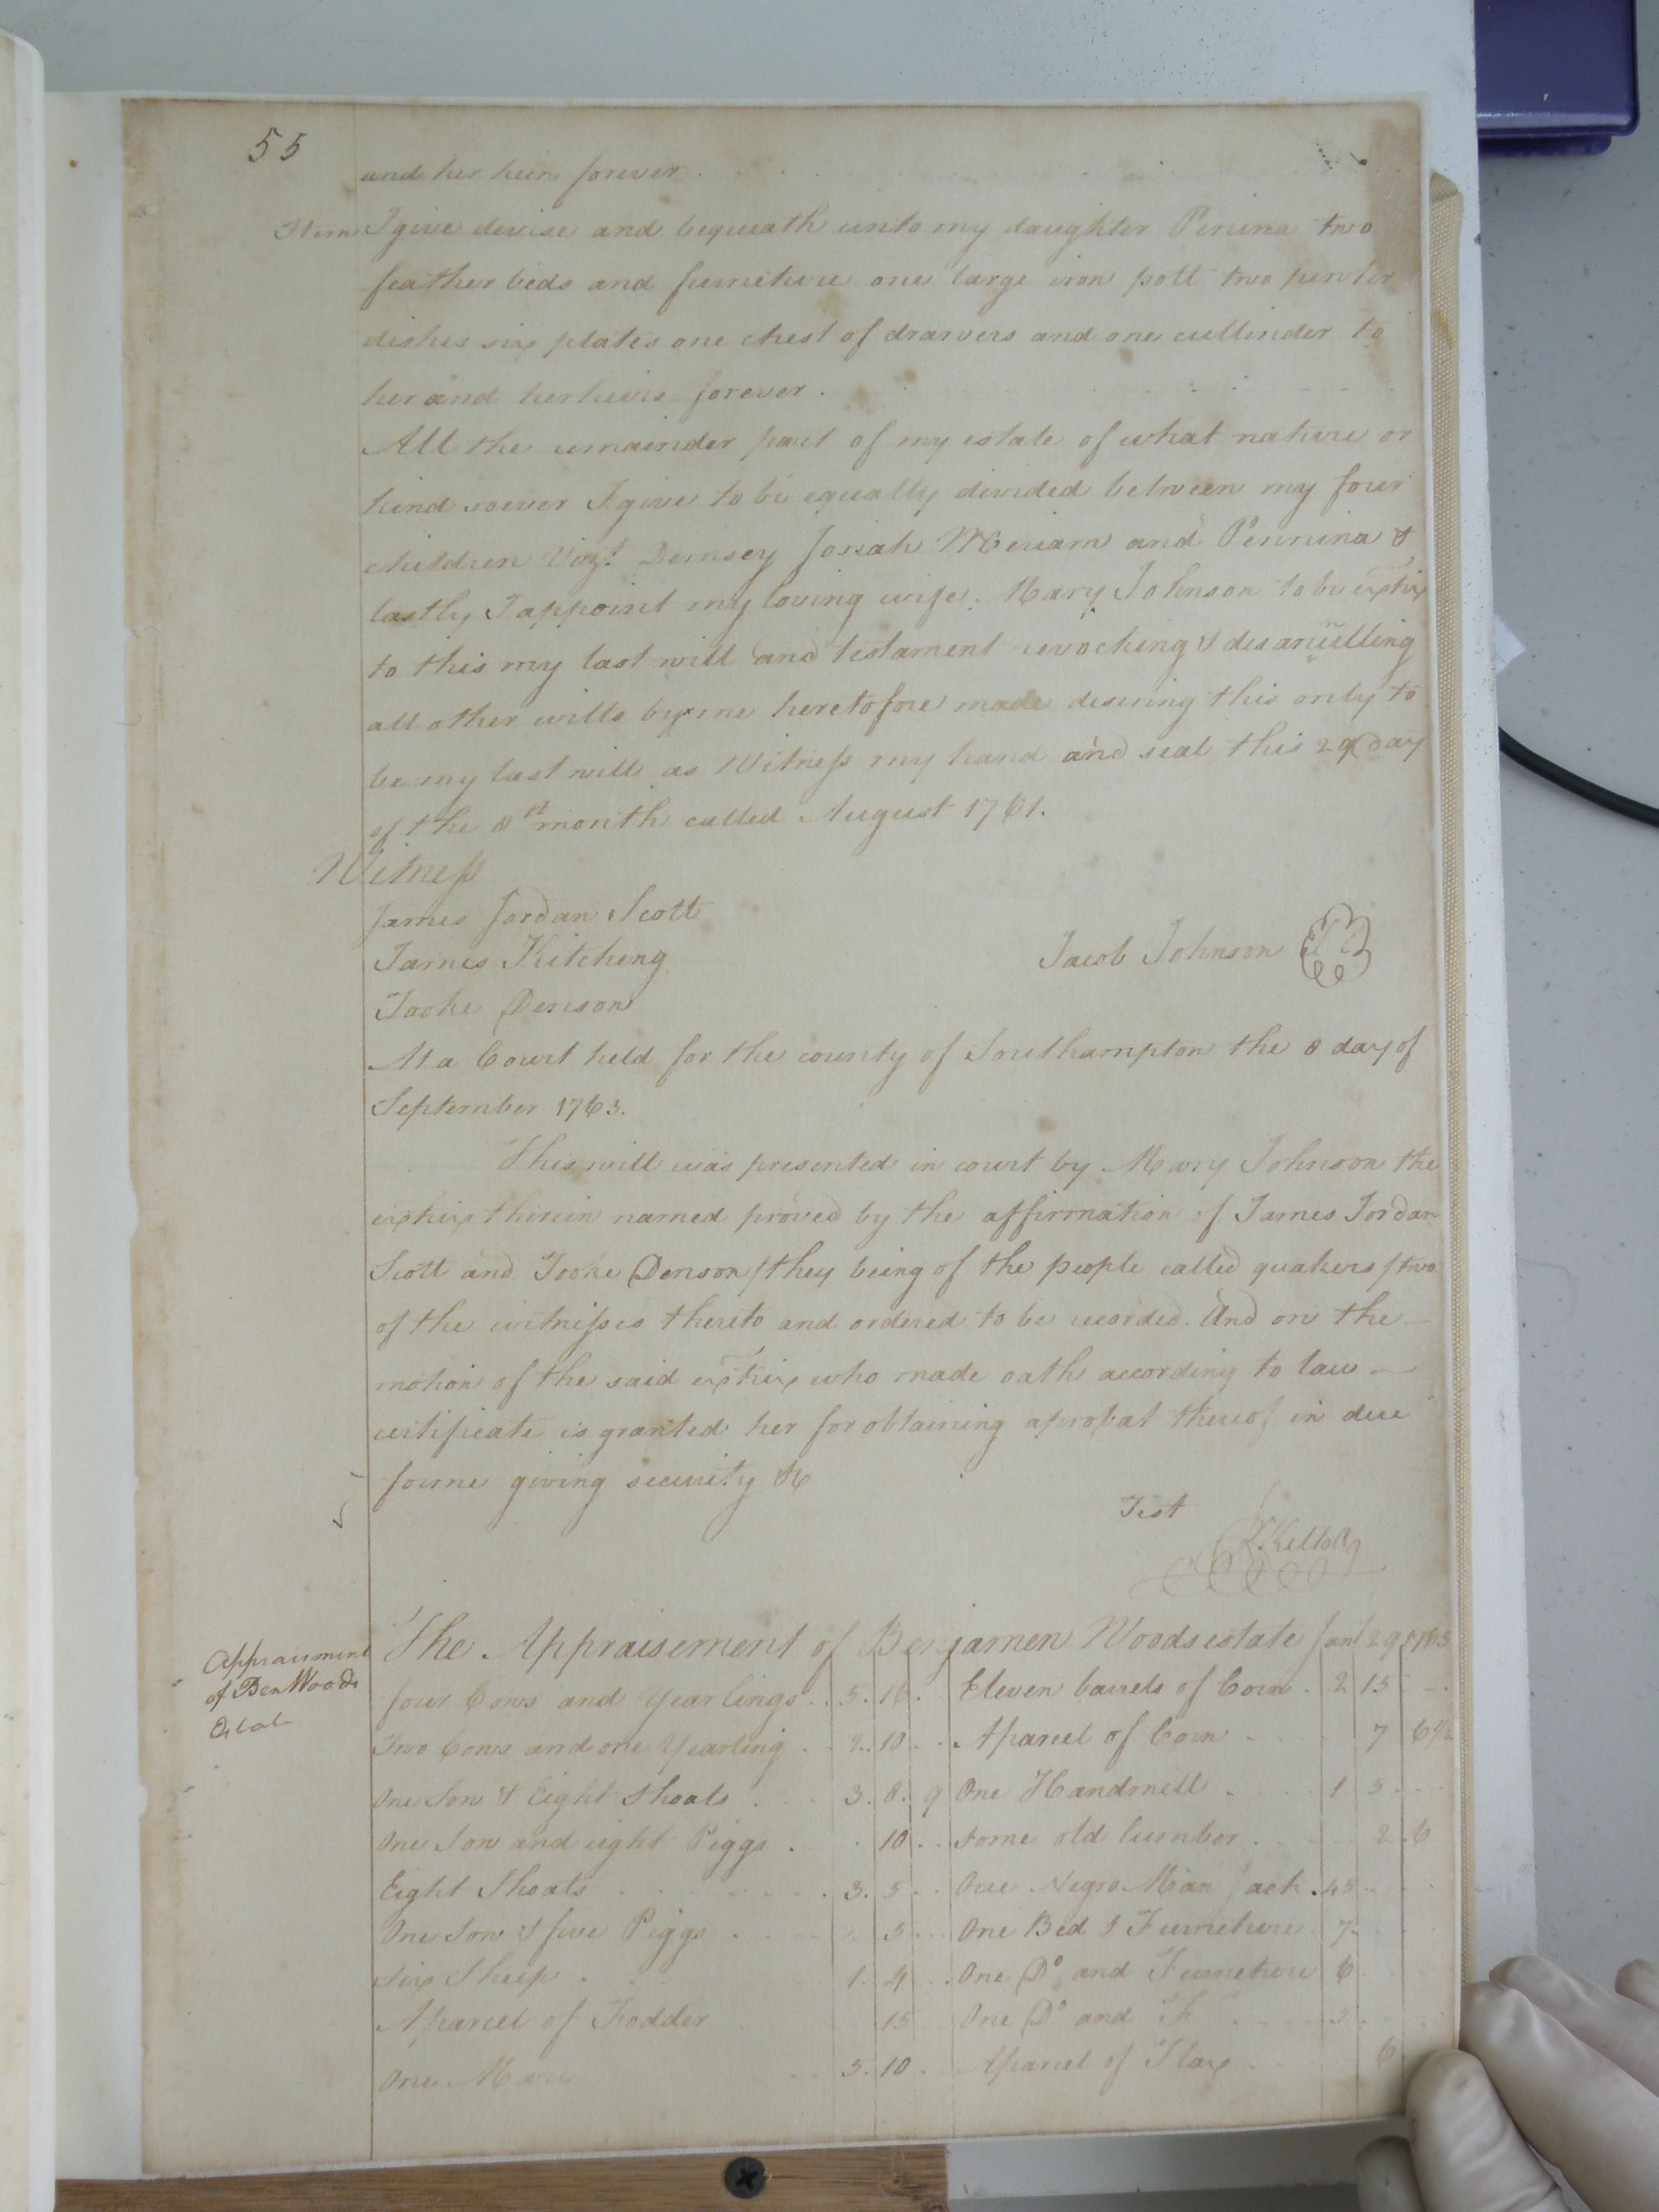 55
and her heirs forever .
Item I give devise and bequeath unto my daughter Penina two
feather beds and furniture one large iron pott two pewter
dishes six plates one chest of drawers and one cullinder to
her and her heirs forever .
All the remainder part of my estate of what nature or
kind soever I give to be equally divided between my four
children Vizt. Demsey Josiah Meriam and Pennina &
lastly I appoint my loving wife Mary Johnson to be extrix
to this my last will and testament revocking & disanulling
all other wills by me heretofore made desiring this only to
be my last will as Witness my hand and seal this 29 day
of the 8th month called August 1761.
Witness
James Jordan Scott
James Kitcheng
Jacob Johnson
Tooke Denson
At a Court held for the county of Southampton the 8 day of
September 1763.
This will was presented in court by Mary Johnson the
extrix therein named proved by the affirmation of James Jordan
Scott and Tooke Denson /they being of the people called quakers/ two
of the witnesses thereto and ordered to be recorded. And on the
motion of the said extrix who made oath according to law
certificate is granted her for obtaining a probat thereof in due
forme giving security &c
Test
R Kello
Appraisment
of Ben Woods
Estate
The Appraisement of Benjamen Woods estate Jany 29 1763
four Cows and Yearlings . . 5. 16. Eleven barrels of Corn . 2 15
Two Cows and one Yearling . . 2. 10 . . A parcel of Corn . . . 7 6 1/2
One Sow & Eight Shoats . . 3. 8. 9 One Handmill . . 1 5
One Sow and eight Piggs . . 10 . . Some old lumber . . 2 . 6
Eight Shoats . . . 3. 5 . . One Negro Man Jack . 45
One Sow & five Piggs . . 5 . . One Bed & Furneture . 7
Six Sheep . 1. 4 . . One Do and Furneture 6
A parcel of Fodder 15 One Do and F . . 5
One Mare 5. 10 . A parcel of Flax . . 6